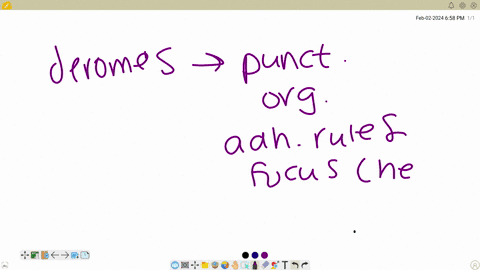 Feb-02-2024 6:58 PM 1/1
Jeromes → punct.
org.
adh. rules
focus (he